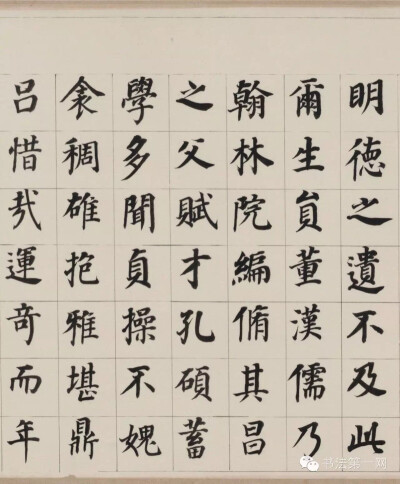 明德之遺不及此
爾生員董漢儒乃
翰林院編脩其昌
之父賦才孔碩蓄
學多聞貞操不媿
衾稠雄抱雅堪鼎
吕惜哉運奇而年
书法第一网